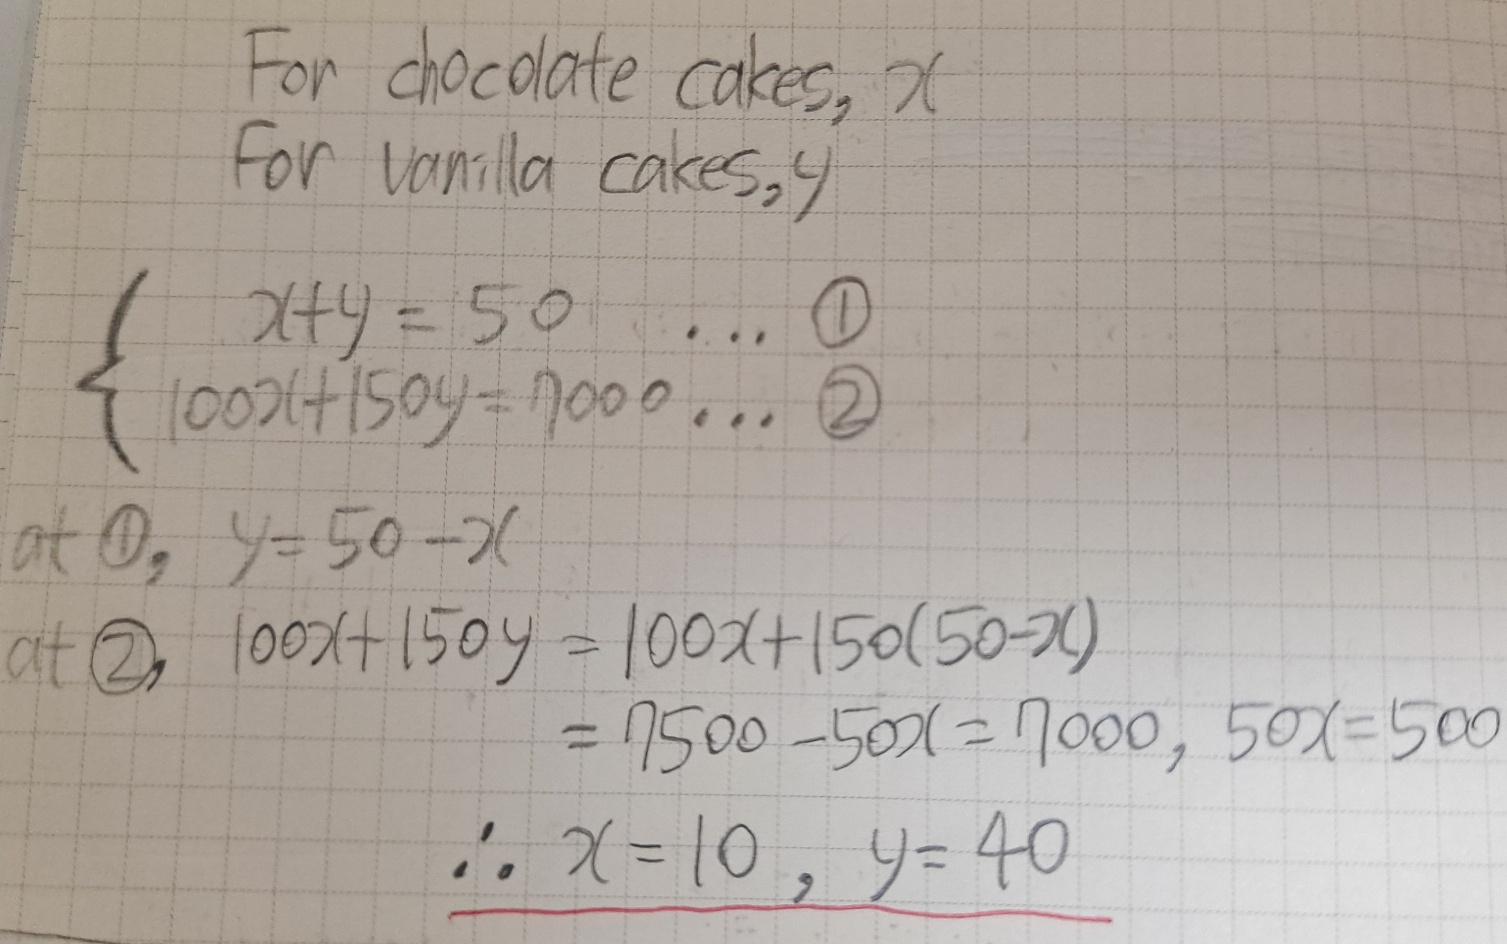 For chocolate cakes, x
For vanilla cakes, y
{ x+y = 50 ... ①
100x+150y=7000... ②
at ①, y=50-x
at ②, 100x+150y = 100x+150(50-x)
= 7500-50x=7000, 50x=500
∴ x=10, y=40